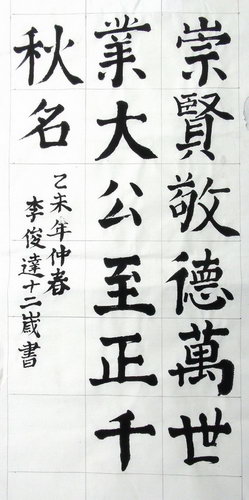 崇賢敬德萬世
業大公至正千
秋名
乙未年仲春
李俊達十二歲書